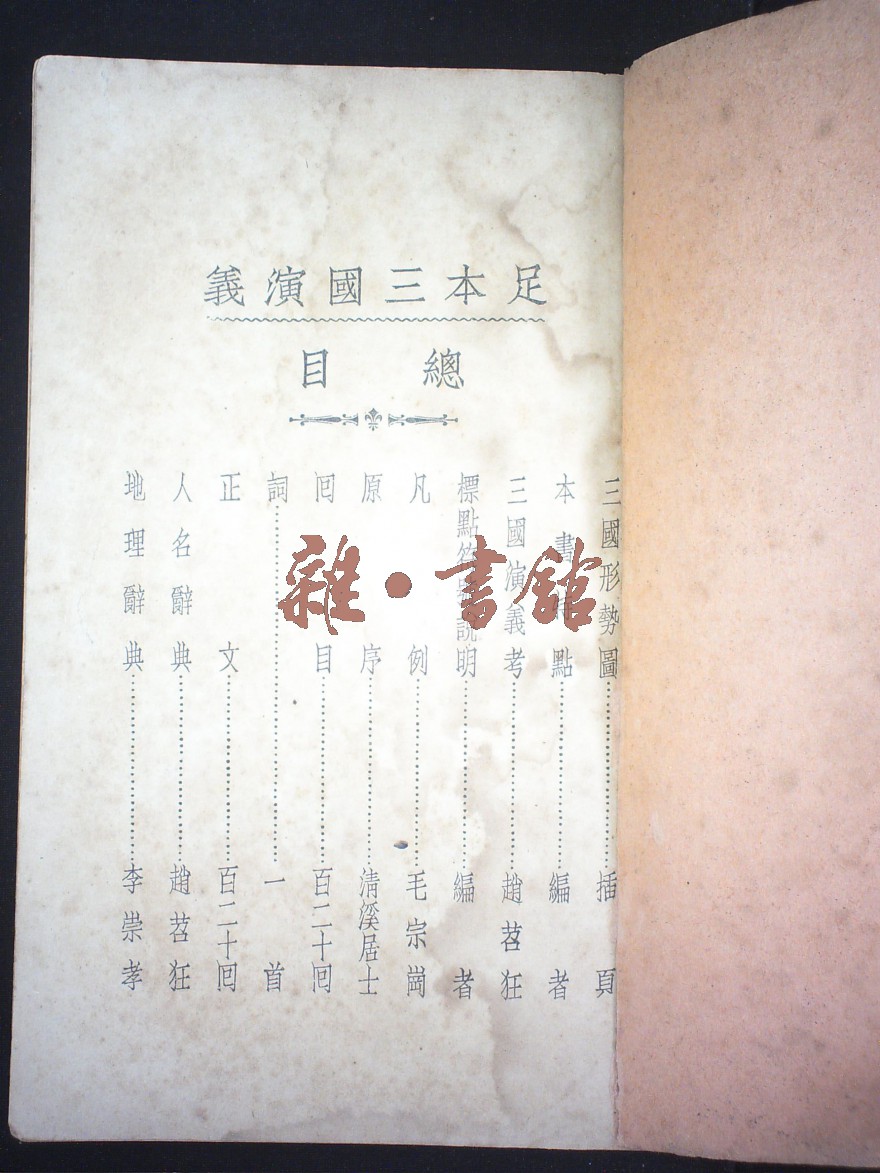 足本三國演義
總目
三國形勢圖……插頁
本書特點……編者
三國演義考……趙苕狂
標點符號說明……編者
凡例……毛宗崗
原序……清溪居士
回目……百二十回
詞……一首
正文……百二十回
人名辭典……趙苕狂
地理辭典……李崇孝
雜·書館